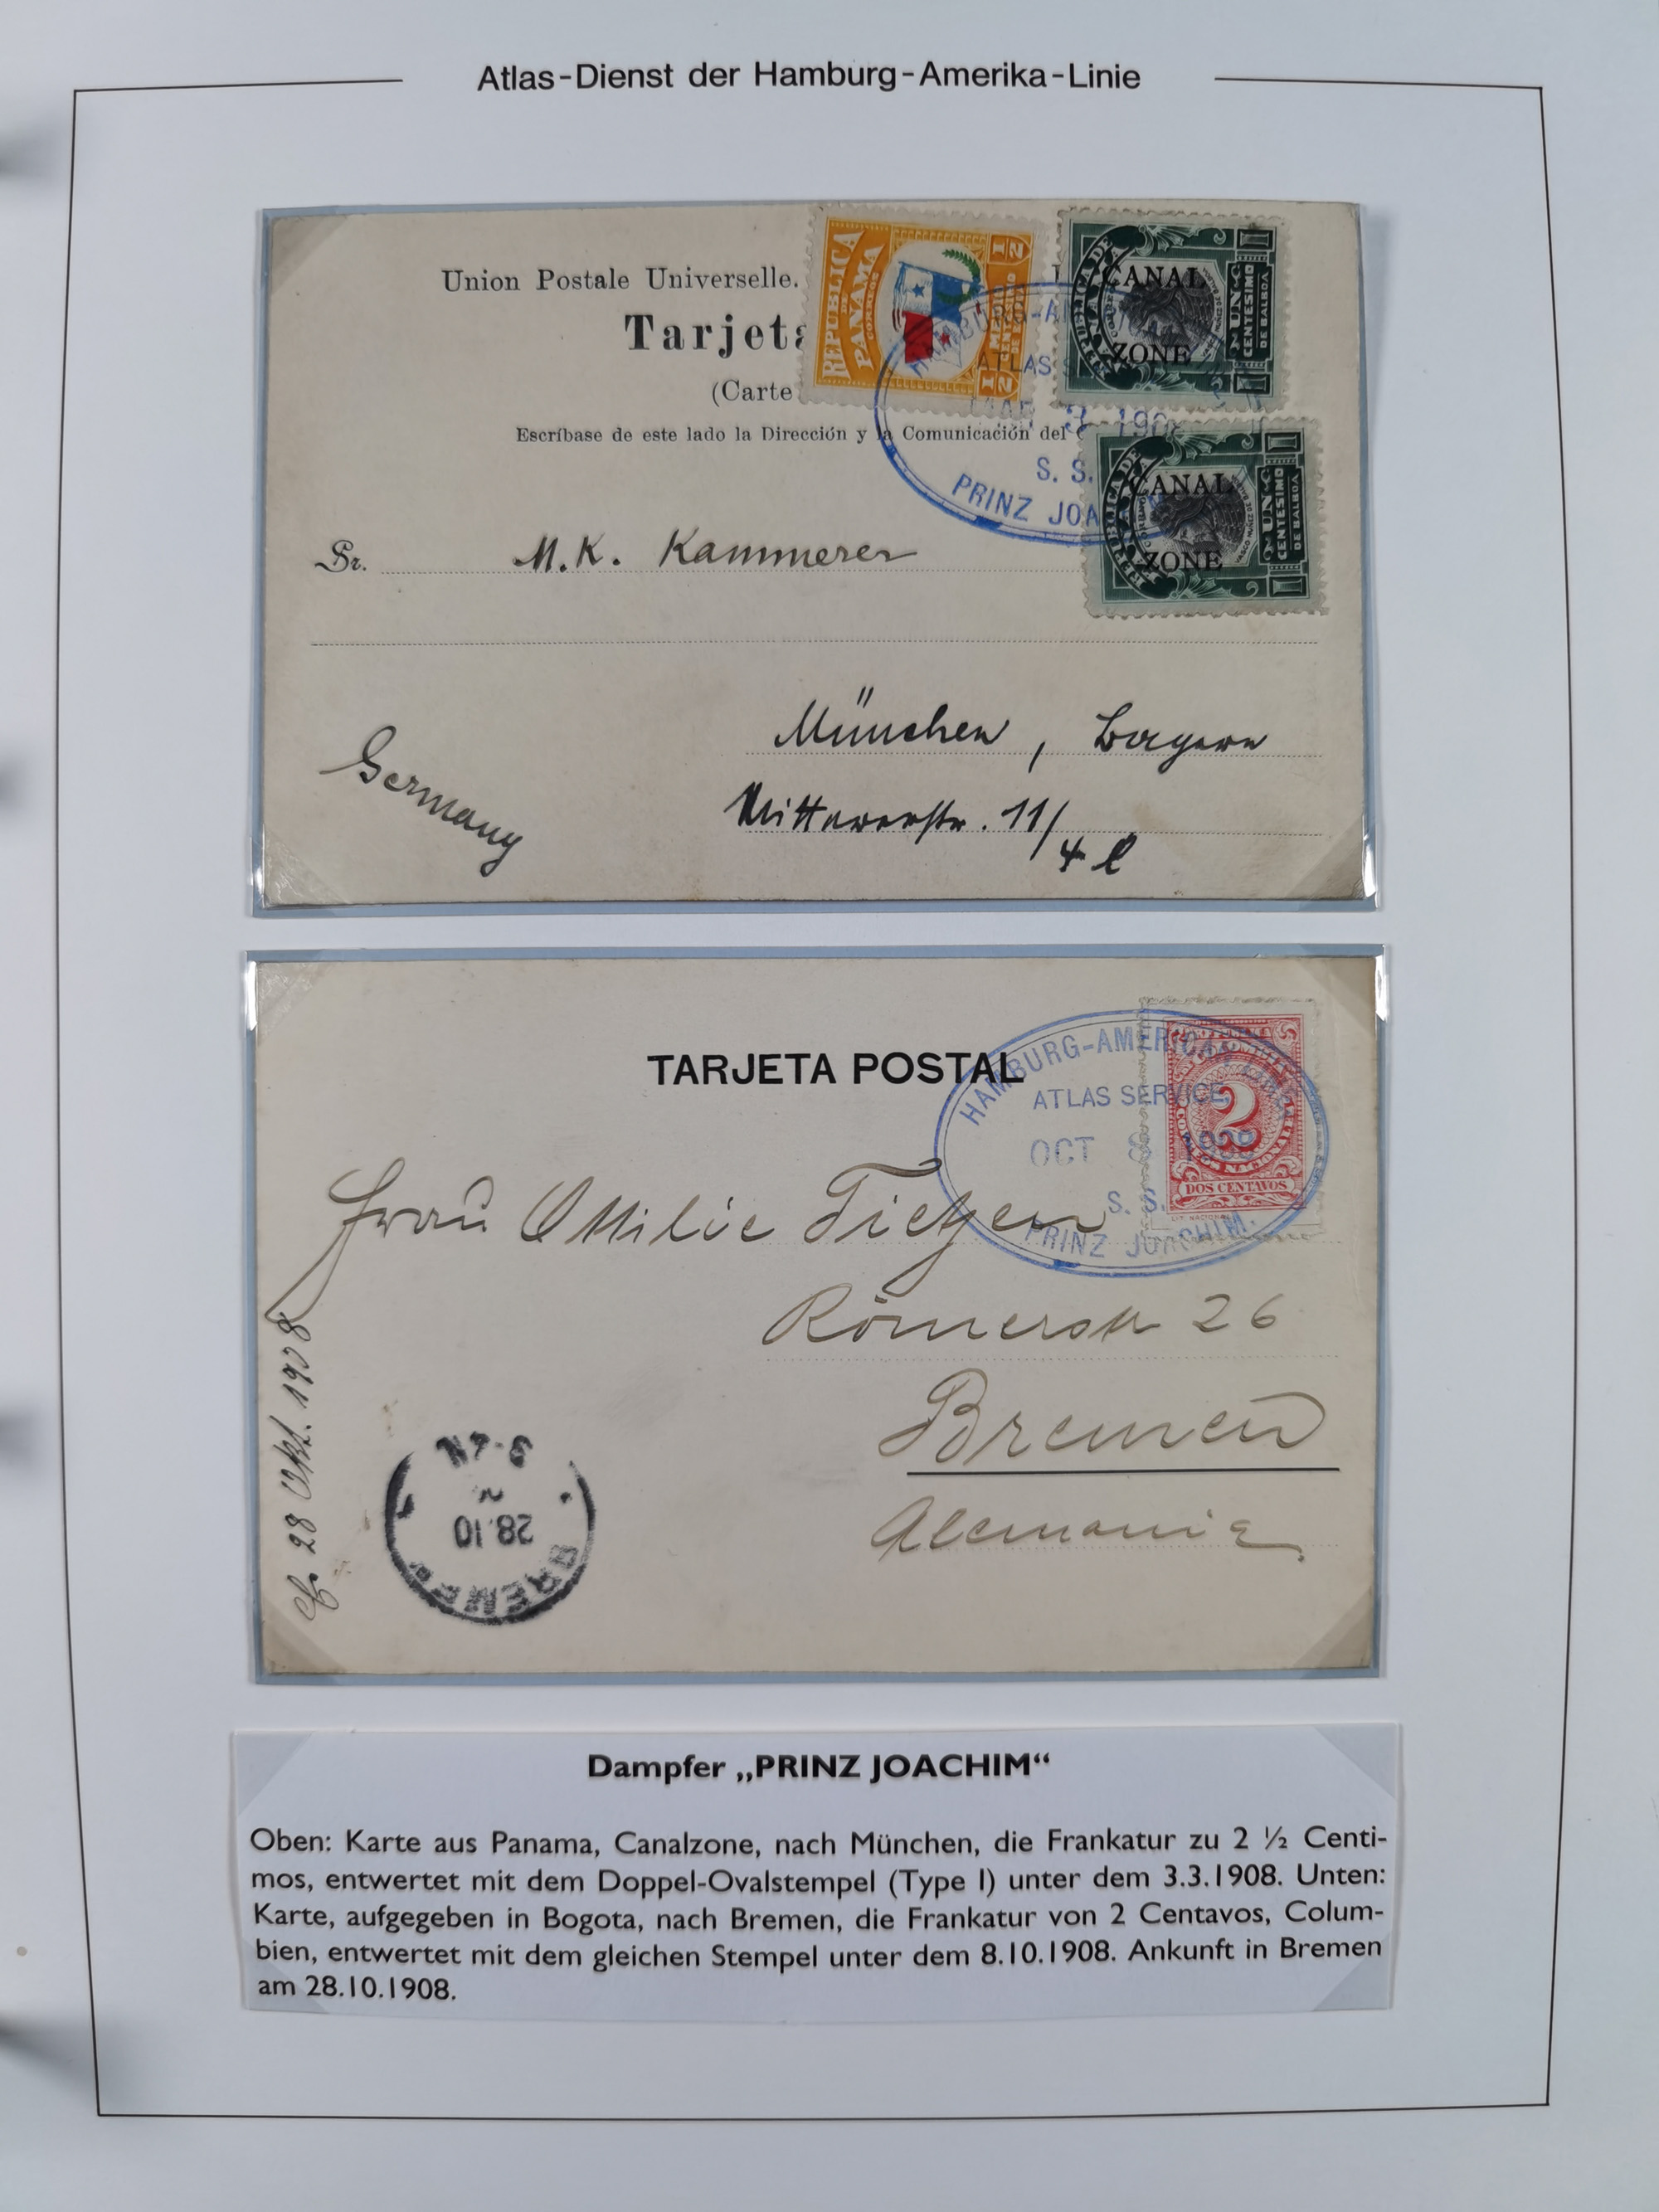 Atlas-Dienst der Hamburg-Amerika-Linie
Union Postale Universelle.
Tarjeta
(Carte
Escríbase de este lado la Dirección y la Comunicación del
REPUBLICA DE PANAMA
CORREOS
1/2
CANAL
ZONE
UN
CENTESIMO
DE BALBOA
CANAL
ZONE
UN
CENTESIMO
DE BALBOA
HAMBURG-AM
ATLAS
MAR 3 190
S. S.
PRINZ JOA
Sr. M. K. Kammerer
München, Bayern
11/4 l
Germany
TARJETA POSTAL
HAMBURG-AMERICAN
ATLAS SERVICE
OCT 8 1908
S. S.
PRINZ JOACHIM.
2
CORREOS NACIONALES
DOS CENTAVOS
Frau Ottilie Tietjen
Römerstr 26
Bremen
Alemania
28 Okt. 1908
BREMEN
28.10
6-7N
Dampfer „PRINZ JOACHIM“
Oben: Karte aus Panama, Canalzone, nach München, die Frankatur zu 2 ½ Centi-
mos, entwertet mit dem Doppel-Ovalstempel (Type I) unter dem 3.3.1908. Unten:
Karte, aufgegeben in Bogota, nach Bremen, die Frankatur von 2 Centavos, Colum-
bien, entwertet mit dem gleichen Stempel unter dem 8.10.1908. Ankunft in Bremen
am 28.10.1908.